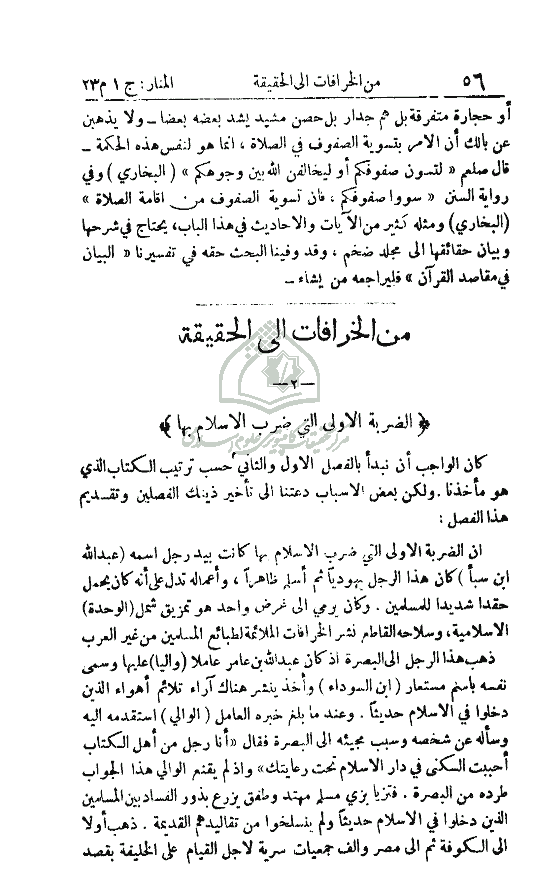 ٥٦ من الخرافات الى الحقيقة المنار: ج ١ م ٢٣
أو حجارة متفرقة بل هم جدار بل حصن مشيد يشد بعضه بعضا ــ ولا يذهبن
عن بالك أن الامر بتسوية الصفوف في الصلاة ، انما هو لنفس هذه الحكمة ــ
قال صلعم « لتسون صفوفكم أو ليخالفن الله بين وجوهكم » (البخاري) وفي
رواية السنن « سووا صفوفكم ، فان تسوية الصفوف من اقامة الصلاة »
(البخاري) ومثله كثير من الآيات والاحاديث في هذا الباب، يحتاج في شرحها
وبيان حقائقها الى مجلد ضخم ، وقد وفينا البحث حقه في تفسيرنا « البيان
في مقاصد القرآن » فليراجعه من يشاء ــ
من الخرافات الى الحقيقة
— ٢ —
﴿ الضربة الاولى التي ضرب الاسلام بها ﴾
كان الواجب أن نبدأ بالفصل الاول والثاني حسب ترتيب الكتاب الذي
هو مأخذنا . ولكن بعض الاسباب دعتنا الى تأخير ذينك الفصلين وتقديم
هذا الفصل :
ان الضربة الاولى التي ضرب الاسلام بها كانت بيد رجل اسمه (عبدالله
ابن سبأ ) كان هذا الرجل يهودياً ثم أسلم ظاهراً ، وأعماله تدل على أنه كان يحمل
حقدا شديدا للمسلمين . وكان يرمي الى غرض واحد هو تمزيق شمل (الوحدة)
الاسلامية، وسلاحه القاطع نشر الخرافات الملائمة لطبائع المسلمين من غير العرب
ذهب هذا الرجل الى البصرة اذ كان عبدالله بن عامر عاملا (واليا) عليها وسمى
نفسه باسم مستعار ( ابن السوداء ) وأخذ ينشر هناك آراء تلائم أهواء الذين
دخلوا في الاسلام حديثاً . وعند ما بلغ خبره العامل ( الوالي ) استقدمه اليه
وسأله عن شخصه وسبب مجيئه الى البصرة فقال «أنا رجل من أهل الكتاب
أحببت السكنى في دار الاسلام تحت رعايتك» واذ لم يقنع الوالي هذا الجواب
طرده من البصرة . فتزيا بزي مسلم مهتد وطفق يزرع بذور الفساد بين المسلمين
الذين دخلوا في الاسلام حديثاً ولم ينسلخوا من تقاليدهم القديمة . ذهب أولا
الى الكوفة ثم الى مصر والف جمعيات سرية لاجل القيام على الخليفة بقصد